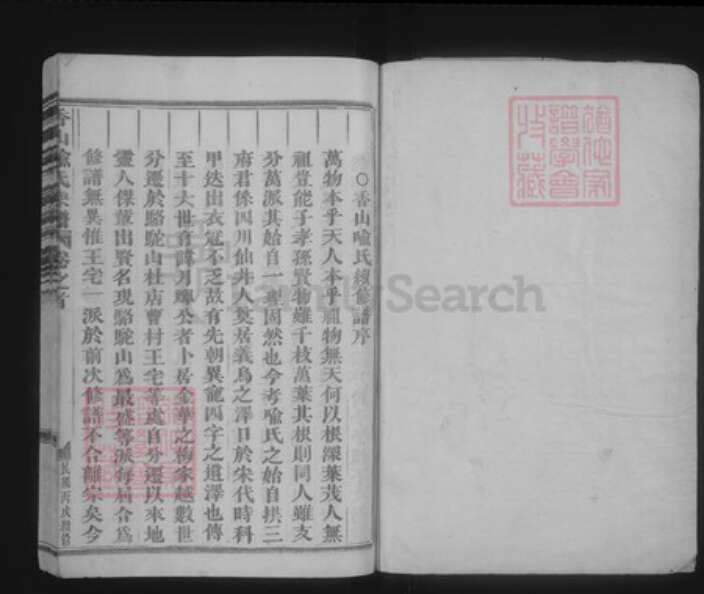 ○香山喻氏續修譜序
萬物本乎天人本乎祖物無天何以根深葉茂人無
祖豈能子孝孫賢物雖千枝萬葉其根則同人雖支
分萬派其始自一理固然也今考喻氏之始自拱三
府君係四川仙井人奠居義烏之澤日於宋代時科
甲迭出衣冠不乏故有先朝異寵四字之遺澤也傳
至十大世育諱月輝公者卜居金華之梅家越數世
分遷於駱駝山杜店曹村王宅等處自分遷以來地
靈人傑董出賢名現駱駝山為最盛等派每屆合為
修譜無異惟王宅一派於前次修譜不合離宗矣今
香山喻氏宗譜 卷之首
民國丙戌續修
譜學會
收藏
FamilySearch